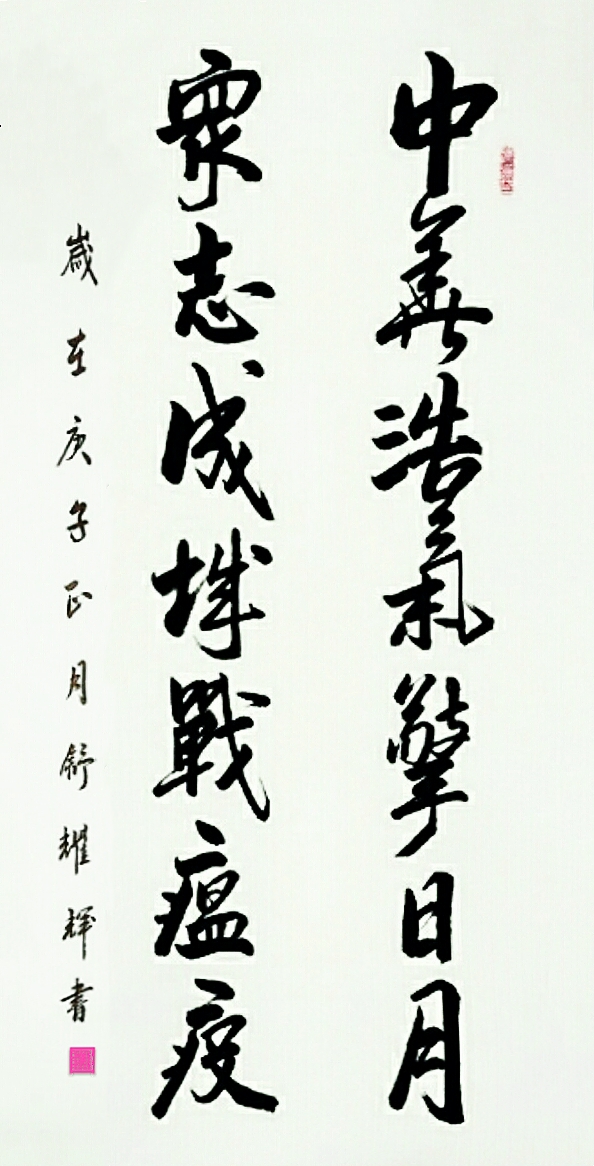 中華浩氣擎日月
眾志成城戰瘟疫
歲在庚子正月舒耀輝書